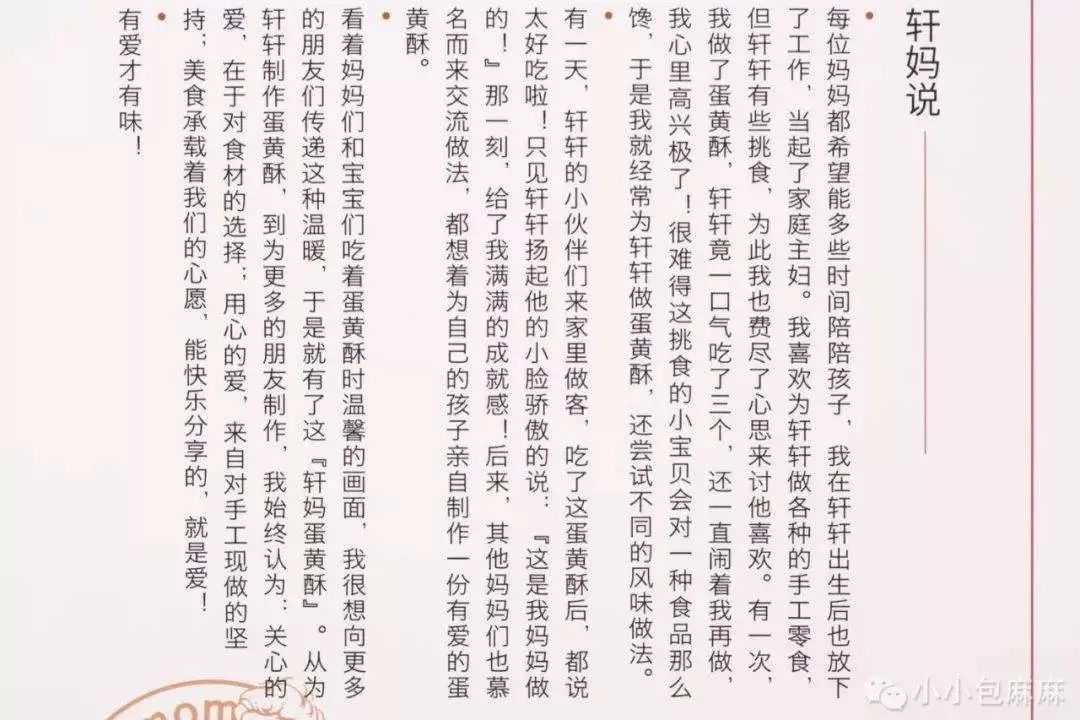 轩妈说
每位妈妈都希望能多些时间陪陪孩子，我在轩轩出生后也放下
了工作，当起了家庭主妇。我喜欢为轩轩做各种的手工零食，
但轩轩有些挑食，为此我也费尽了心思来讨他喜欢。有一次，
我做了蛋黄酥，轩轩竟一口气吃了三个，还一直闹着我再做，
我心里高兴极了！很难得这挑食的小宝贝会对一种食品那么
馋，于是我就经常为轩轩做蛋黄酥，还尝试不同的风味做法。
有一天，轩轩的小伙伴们来家里做客，吃了这蛋黄酥后，都说
太好吃啦！只见轩轩扬起他的小脸骄傲的说：『这是我妈妈做
的！』那一刻，给了我满满的成就感！后来，其他妈妈们也慕
名而来交流做法，都想着为自己的孩子亲自制作一份有爱的蛋
黄酥。
看着妈妈们和宝宝们吃着蛋黄酥时温馨的画面，我很想向更多
的朋友们传递这种温暖，于是就有了这『轩妈蛋黄酥』。从为
轩轩制作蛋黄酥，到为更多的朋友制作，我始终认为：关心的
爱，在于对食材的选择；用心的爱，来自对手工现做的坚
持；美食承载着我们的心愿，能快乐分享的，就是爱！
有爱才有味！
mom
小小包麻麻